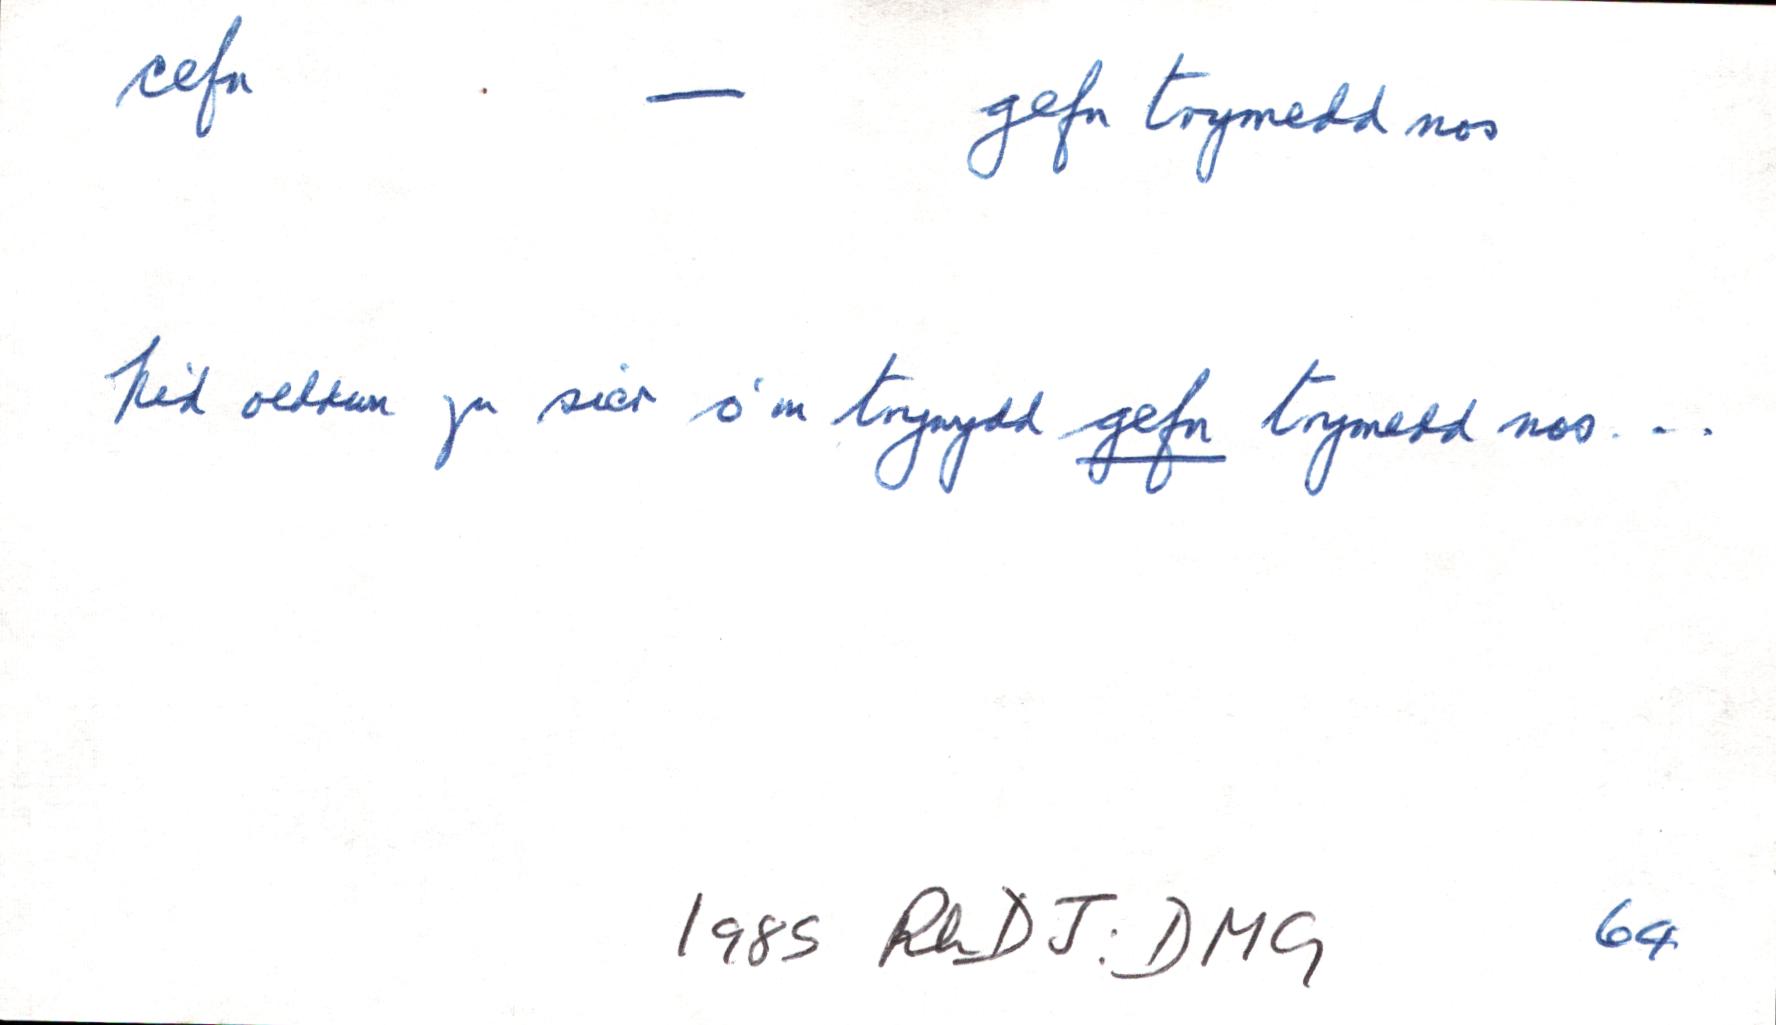 cefn — gefn trymedd nos
Nid oeddwn yn sicr o'm trywydd gefn trymedd nos...
1985 RhDJ: DMG 64